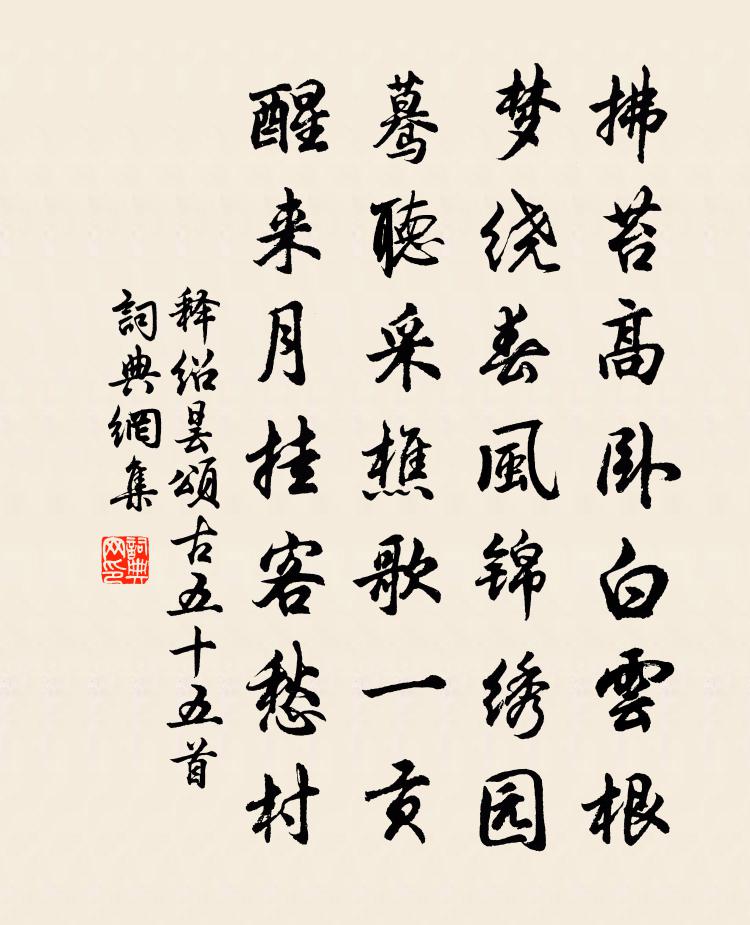 拂苔高卧白雲根
梦绕春風锦绣园
蓦聽采樵歌一贡
醒来月挂客愁村
释绍昙頌古五十五首
詞典網集
詞典网印